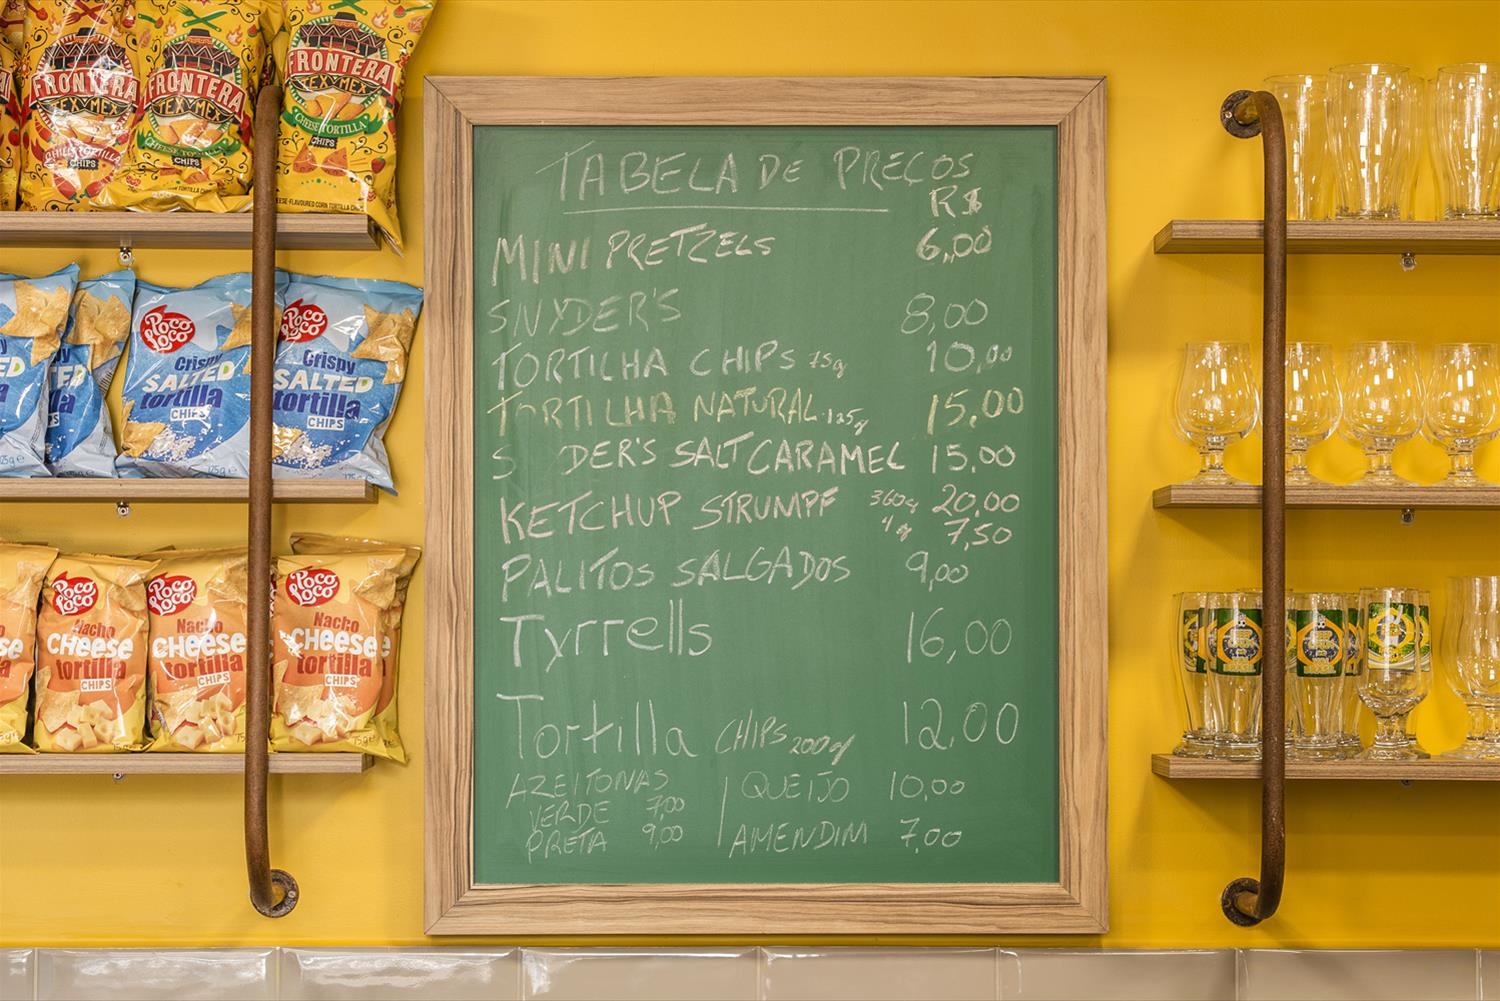 FRONTERA
TEX MEX
CHILLI TORTILLA
CHIPS
FRONTERA
TEX MEX
CHEESE TORTILLA
CHIPS
FRONTERA
TEX MEX
CHEESE TORTILLA
CHIPS
CHEESE-FLAVOURED CORN TORTILLA CHIPS
Poco Loco
Crispy
SALTED
tortilla
CHIPS
125g e
Poco Loco
Crispy
SALTED
tortilla
CHIPS
125g e
Poco Loco
Nacho
CHEESE
tortilla
CHIPS
75g e
Poco Loco
Nacho
CHEESE
tortilla
CHIPS
Poco Loco
Nacho
CHEESE
tortilla
CHIPS
75g e
TABELA DE PREÇOS
R$
MINI PRETZELS 6,00
SNYDER'S 8,00
TORTILHA CHIPS 75g 10,00
TORTILHA NATURAL 125g 15,00
S DER'S SALT CARAMEL 15,00
KETCHUP STRUMPF 360g 20,00
7,50
PALITOS SALGADOS 9,00
Tyrrells 16,00
Tortilla CHIPS 200g 12,00
AZEITONAS
VERDE 7,00
PRETA 9,00
QUEIJO 10,00
AMENDIM 7,00